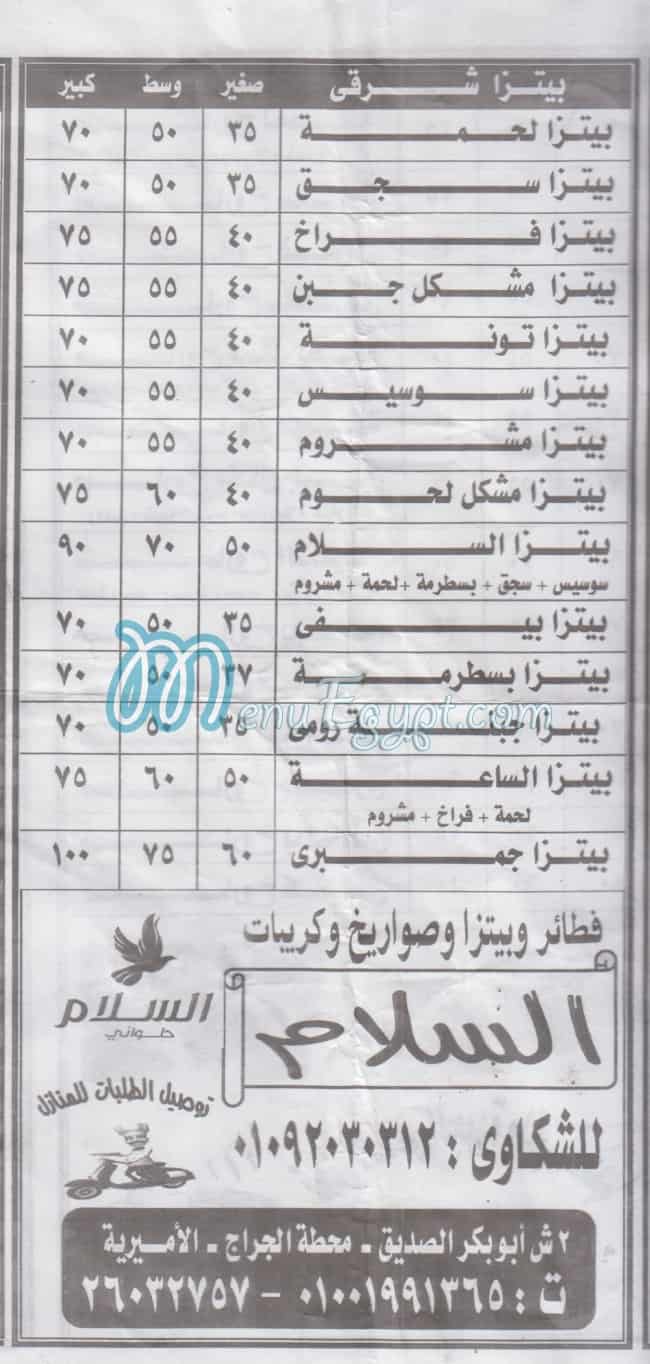 بيتزا شرقى صغير وسط كبير
بيتزا لحمة ٣٥ ٥٠ ٧٠
بيتزا سجق ٣٥ ٥٠ ٧٠
بيتزا فراخ ٤٠ ٥٥ ٧٥
بيتزا مشكل جبن ٤٠ ٥٥ ٧٥
بيتزا تونة ٤٠ ٥٥ ٧٠
بيتزا سوسيس ٤٠ ٥٥ ٧٠
بيتزا مشروم ٤٠ ٥٥ ٧٠
بيتزا مشكل لحوم ٤٠ ٦٠ ٧٥
بيتزا السلام ٥٠ ٧٠ ٩٠
سوسيس + سجق + بسطرمة + لحمة + مشروم
بيتزا بيفى ٣٥ ٥٠ ٧٠
بيتزا بسطرمة ٣٧ ٥٠ ٧٠
MenuEgypt.com
بيتزا جبنة رومى ٣٥ ٥٠ ٧٠
بيتزا الساعة ٥٠ ٦٠ ٧٥
لحمة + فراخ + مشروم
بيتزا جمبرى ٦٠ ٧٥ ١٠٠
فطائر وبيتزا وصواريخ وكريبات
السلام
السلام
حلواني
توصيل الطلبات للمنازل
للشكاوى : ٠١٠٩٢٠٣٠٣١٢
٢ ش أبو بكر الصديق - محطة الجراج - الأميرية
ت : ٠١٠٠١٩٩١٣٦٥ - ٢٦٠٣٢٧٥٧